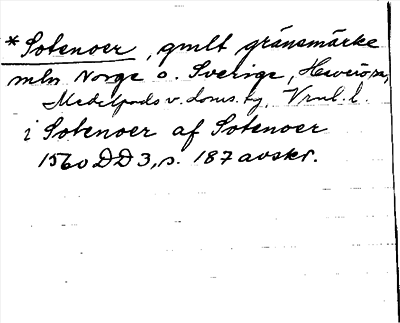 *Sotenoer, gmlt gränsmärke
mln Norge o. Sverige,
Medelpads v. doms. tg, Vrnl. l.
i Sotenoer af Sotenoer
1560 DD 3, s. 187 avskr.